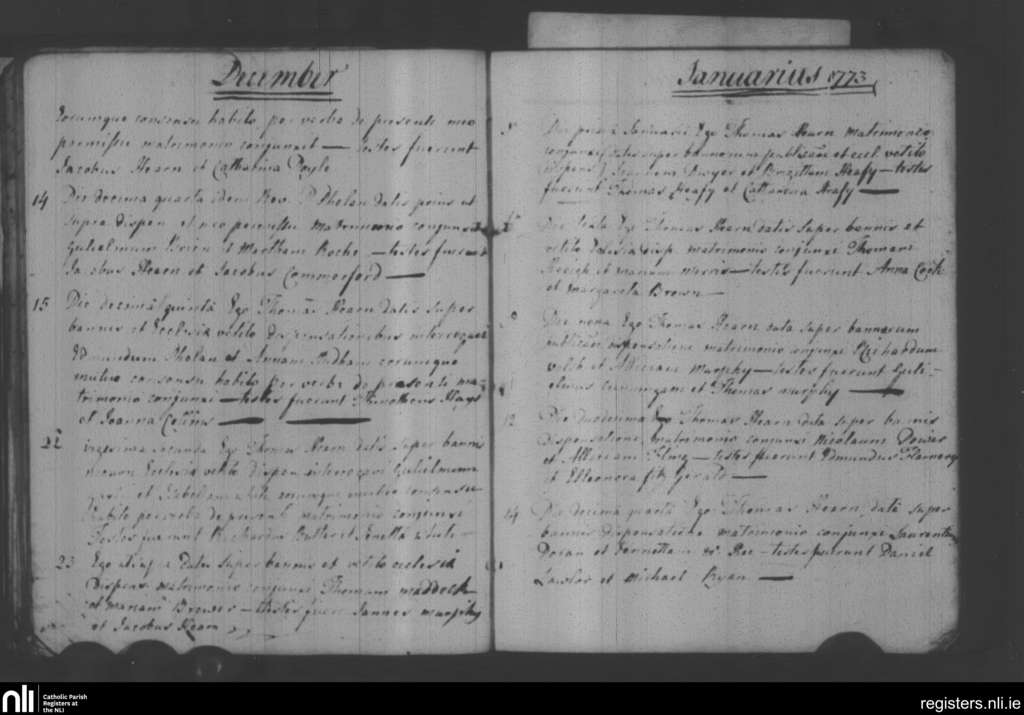 December
Eorumque consensu habito per verba de presenti meo
permissu matrimonio conjunxit — testes fuerunt
Jacobus Hearn et Catharina Doyle
14 Die decima quarta idem Rev. P. Phelan datis prius ut
supra dispen. et meo permissu matrimonio conjunxit
Gulielmum et Martham Roche — testes fuerunt
Jacobus Hearn et Jacobus Commerford —
15 Die decimâ quintâ Ego Thomas Hearn datis super
bannis et Ecclesiæ vetito dispensationibus interrogavi
Edmundum Phelan et Annam eorumque
mutuo consensu habito per verba de presenti ma-
trimonio conjunxi — testes fuerunt Timotheus Hays
et Joanna Collins — —
22 vigesima secunda Ego Thomas Hearn datis super bannis
necnon Ecclesiæ vetito dispen. interrogavi Gulielmum
et eorumque mutuo consensu
habito per verba de presenti matrimonio conjunxi
Testes fuerunt Richardus Butler et
23 Ego datis super bannis et vetito ecclesiæ
Dispens. matrimonio conjunxi Thomam maddock
et mariam Brewer — testes fuere Jannes murphy
et Jacobus Hearn
Januarius 1773
Die primâ Januarii Ego Thomas Hearn matrimonio
conjunxi datis super bannorum publicae et eccl. vetito
dispens. Dwyer et Brigittam Heafy — testes
fuerunt Thomas Heafy et Catharina Heafy —
Die Ego Thomas Hearn datis super bannis et
vetito Ecclesiæ disp. matrimonio conjunxi Thomam
et mariam — testes fuerunt Anna
et Margareta Brown —
Die nona Ego Thomas Hearn data super bannorum
publicae dispensatione matrimonio conjunxi Richardum
et murphy — testes fuerunt Guli-
elmus et Thomas murphy —
12 Die duodecima Ego Thomas Hearn data super bannis
Dispensatione matrimonio conjunxi Nicolaum
et — testes fuerunt Edmundus
et Elleonora fitz Gerald —
14 Die decimâ quartâ Ego Thomas Hearn datâ super
bannis dispensatione matrimonio conjunxi Laurentium
Doran et — testes fuerunt Daniel
Lawlor et Michael Ryan —
nli Catholic Parish
Registers at
the NLI
registers.nli.ie